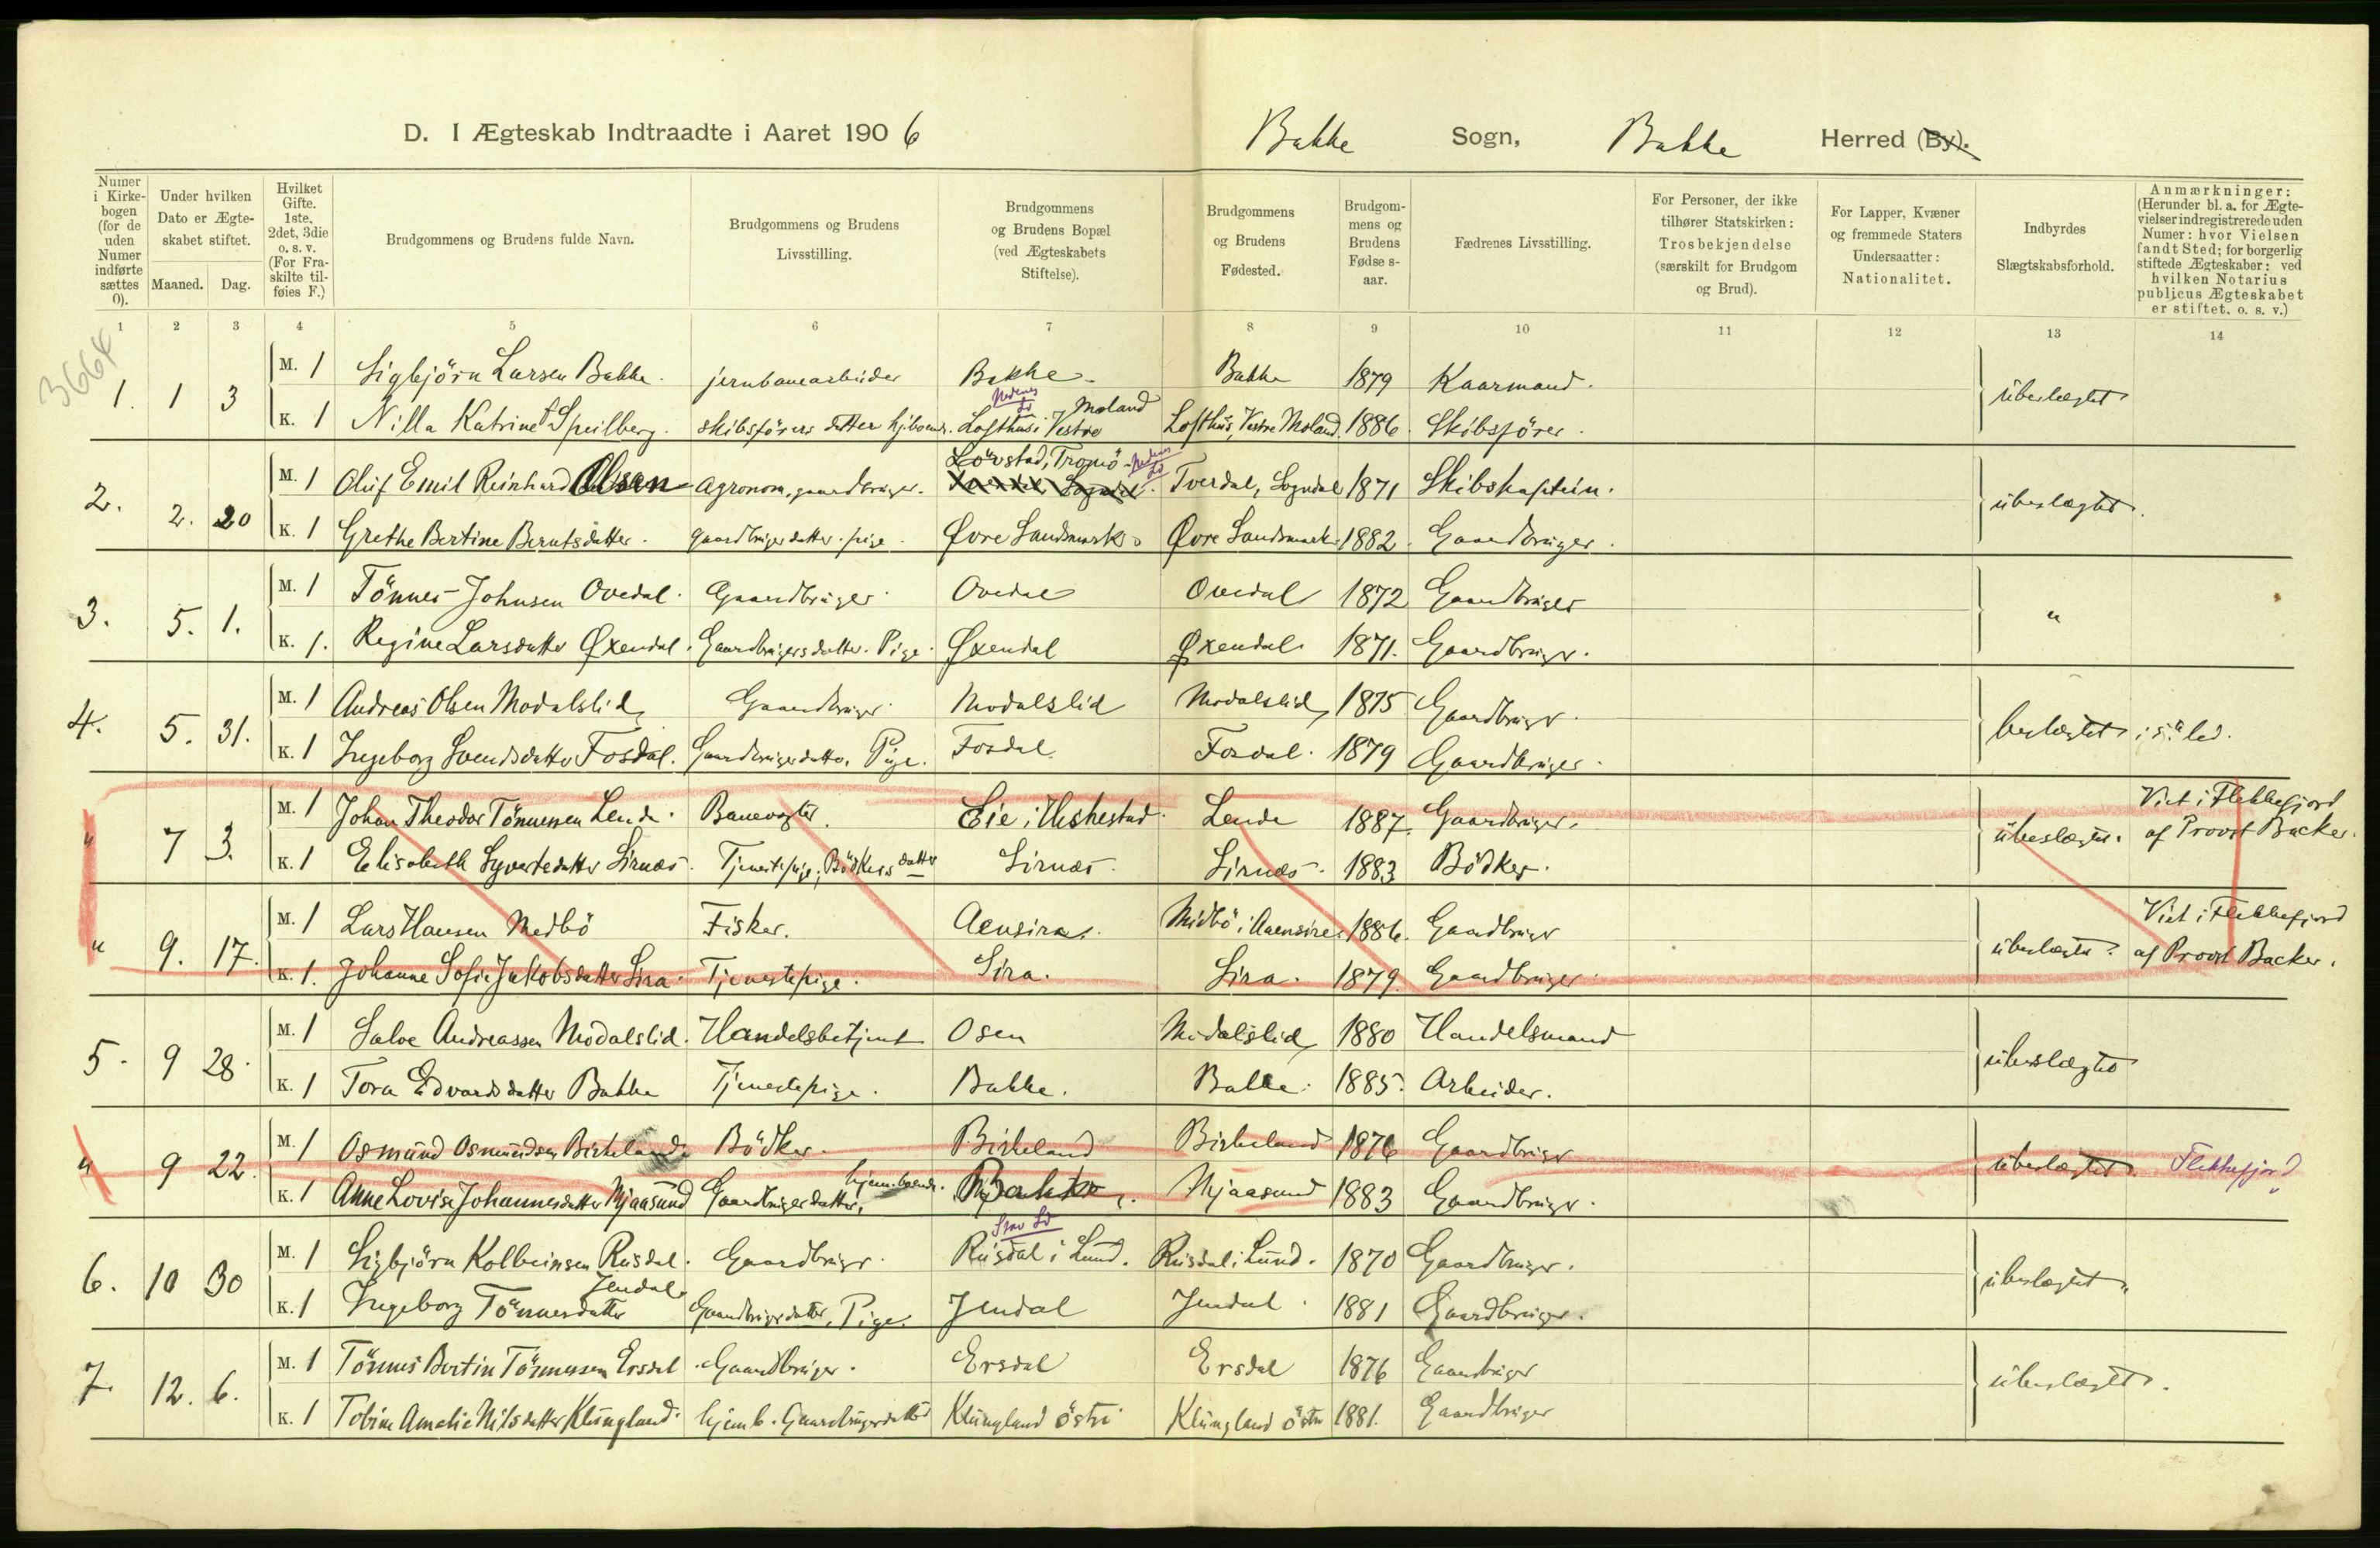 D. I Ægteskab Indtraadte i Aaret 1906 Bakke Sogn, Bakke Herred (By).
Numer i Kirkebogen (for de uden Numer indførte sættes 0).
Under hvilken Dato er Ægteskabet stiftet.
Maaned. Dag.
Hvilket Gifte. 1ste, 2det, 3die o. s. v. (For Fraskilte tilføies F.)
Brudgommens og Brudens fulde Navn.
Brudgommens og Brudens Livsstilling.
Brudgommens og Brudens Bopæl (ved Ægteskabets Stiftelse).
Brudgommens og Brudens Fødested.
Brudgommens og Brudens Fødselsaar.
Fædrenes Livsstilling.
For Personer, der ikke tilhører Statskirken: Trosbekjendelse (særskilt for Brudgom og Brud).
For Lapper, Kvæner og fremmede Staters Undersaatter: Nationalitet.
Indbyrdes Slægtskabsforhold.
Anmærkninger: (Herunder bl. a. for Ægtevielser indregistrerede uden Numer: hvor Vielsen fandt Sted; for borgerlig stiftede Ægteskaber: ved hvilken Notarius publicus Ægteskabet er stiftet. o. s. v.)
1 2 3 4 5 6 7 8 9 10 11 12 13 14
3664
1. 1 3 M. 1 Sigbjörn Larsen Bakke. jernbanearbeider Bakke. Bakke 1879 Kaarmand. ubeslægtet
Nedenes
K. 1 Nilla Katrine Speilberg. skibsförers datter hjboende. Lofthus i Vestre Moland Lofthus, Vestre Moland. 1886. Skibsförer.
2. 2. 20 M. 1 Oluf Emil Reinhard Olsen Agronom, gaardbruger. Lövstad, Tromö Nedenes Tverdal, Sogndal 1871 Skibskaptein. ubeslægtet.
K. 1 Grethe Bertine Berntsdatter. gaardbrugerdatter. pige. Øvre Landsmark Øvre Landsmark 1882. Gaardbruger.
3. 5. 1. M. 1 Tönnes Johnsen Ovedal. Gaardbruger. Ovedal Ovedal 1872 Gaardbruger "
K. 1. Regine Larsdatter Øxendal. Gaardbrugersdatter. Pige. Øxendal Øxendal 1871. Gaardbruger.
4. 5. 31. M. 1 Andreas Olsen Modalslid Gaardbruger. Modalslid Modalslid 1875 Gaardbruger. beslægtet i 5te led.
K. 1 Ingeborg Svendsdatter Fosdal. Gaardbrugerdatter. Pige. Fosdal Fosdal. 1879 Gaardbruger.
" 7 3. M. 1 Johan Theodor Tönnessen Lende. Banevogter. Eie i Heskestad. Lende 1887. Gaardbruger. ubeslægtet. Viet i Flekkefjord af Provst Backer.
K. 1 Elisabeth Syvertsdatter Sirnæs. Tjenestepige, Bödkers datter Sirnæs. Sirnæs. 1883 Bödker.
" 9. 17. M. 1 Lars Hansen Medbö Fisker. Aensira. Midbö i Aaensire. 1886. Gaardbruger ubeslægtet. Viet i Flekkefjord af Provst Backer.
K. 1. Johanne Sofie Jakobsdatter Sira. Tjenestepige. Sira. Sira. 1879. Gaardbruger.
5. 9 28. M. 1 Salve Andreassen Modalslid. Handelsbetjent Osen Modalslid 1880 Handelsmand ubeslægtet
K. 1 Tora Edvardsdatter Bakke Tjenestepige. Bakke. Bakke. 1885. Arbeider.
" 9 22. M. 1 Osmund Osmundsen Birkeland. Bödker. Birkeland Birkeland 1876 Gaardbruger ubeslægtet. Flekkefjord
K. 1 Anne Lovise Johannesdatter Mjaasund Gaardbrugerdatter, hjem.boende. Bakke. Mjaasund 1883 Gaardbruger.
6. 10 30 M. 1 Sigbjörn Kolbeinsen Rusdal. Gaardbruger. Rusdal i Lund. Rusdal i Lund. 1870 Gaardbruger. ubeslægtet.
K. 1 Ingeborg Tönnesdatter Jendal Gaardbrugerdatter, Pige. Jendal Jendal. 1881 Gaardbruger.
7. 12. 6. M. 1 Tönnes Bertin Tönnessen Ersdal. Gaardbruger. Ersdal Ersdal 1876 Gaardbruger ubeslægtet.
K. 1 Tobine Amalie Nilsdatter Klungland. hjemb. Gaardbrugerdatter Klungland östri Klungland östre 1881. Gaardbruger